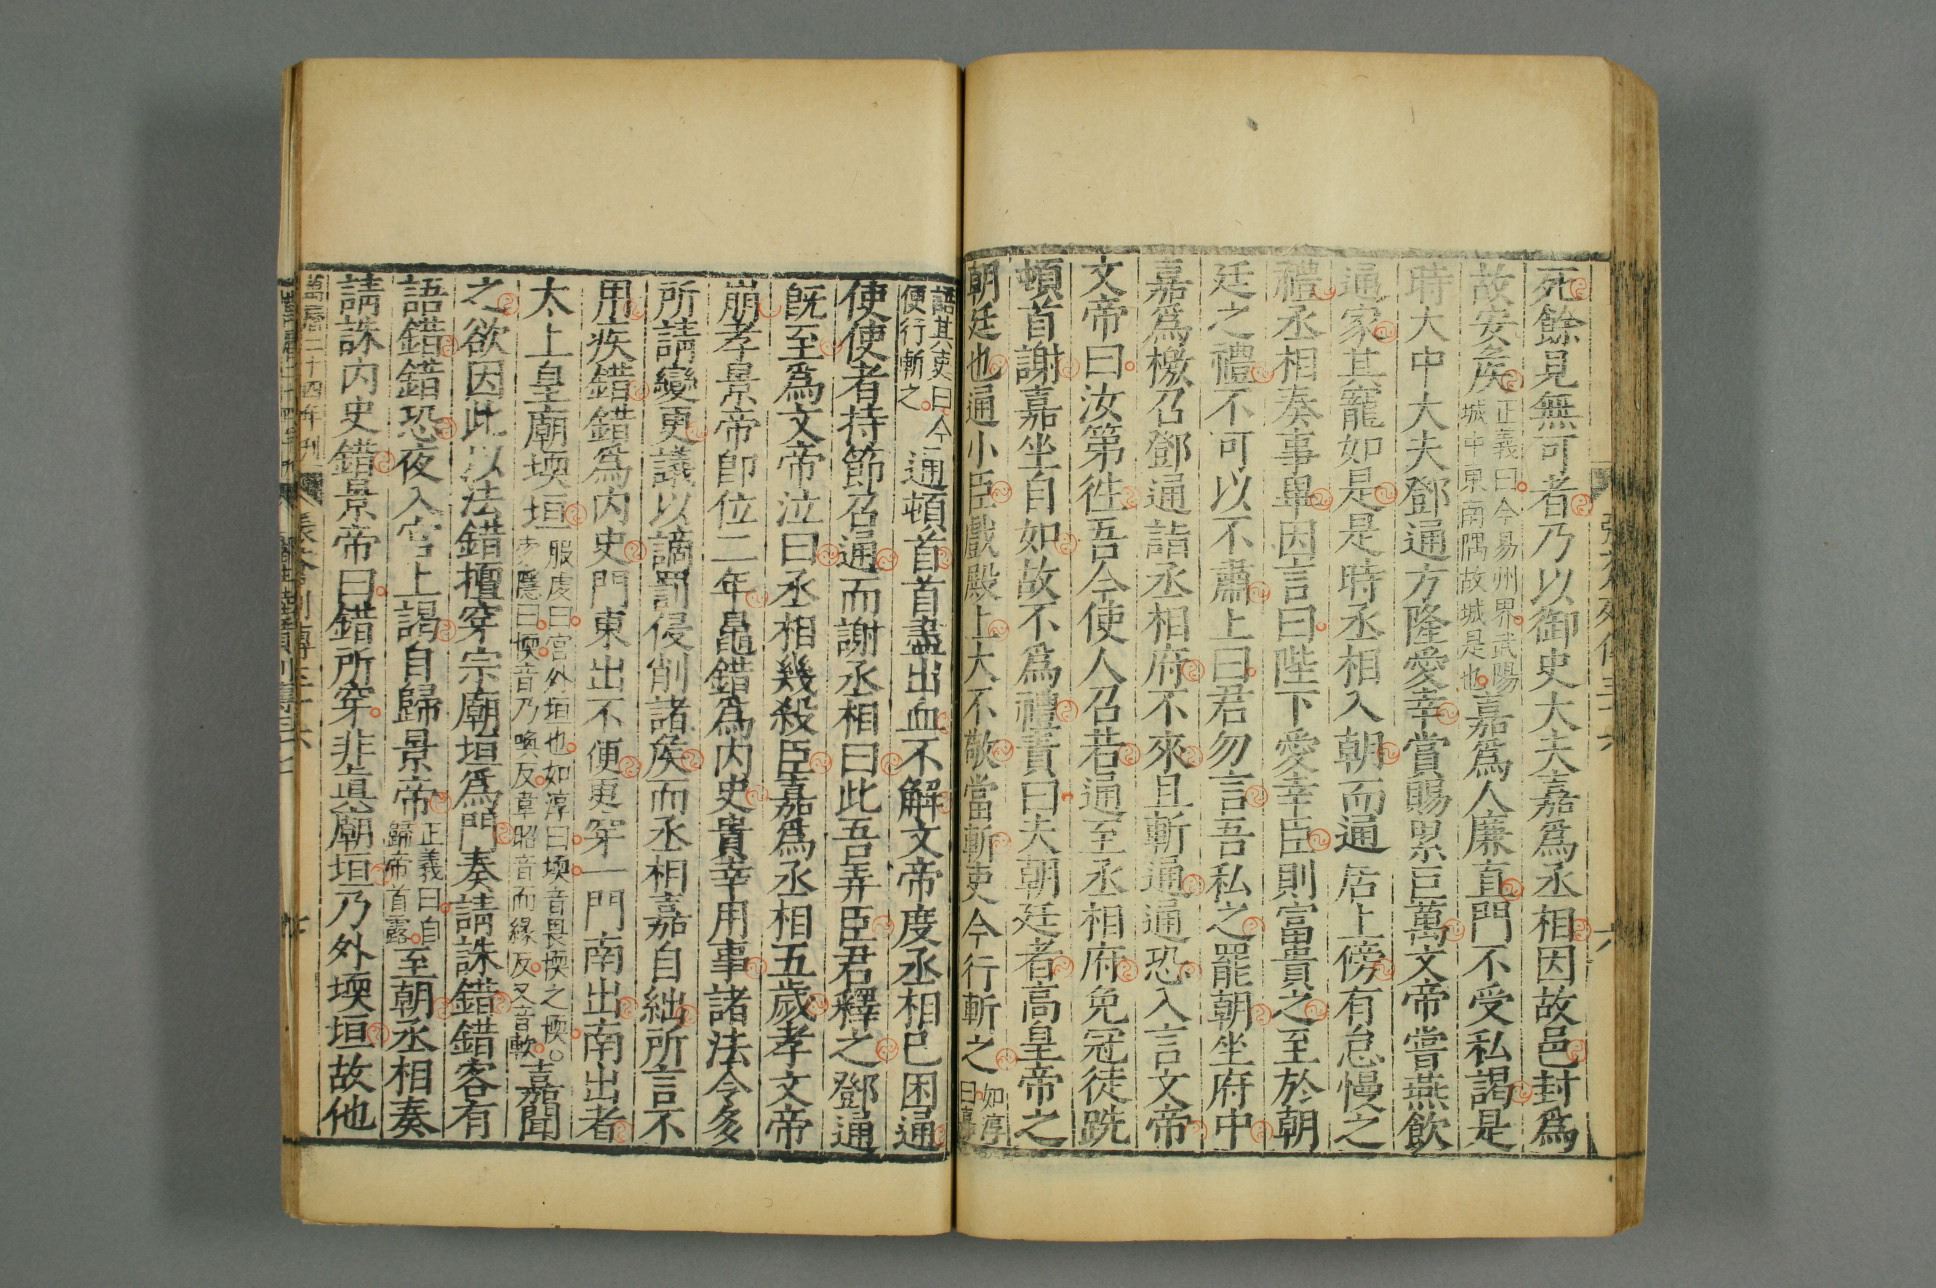 死餘見無可者乃以御史大夫嘉爲丞相因故邑封爲
故安矦正義曰今易州界武陽城中東南隅故城是也嘉爲人廉直門不受私謁是
時大中大夫鄧通方隆愛幸賞賜累巨萬文帝嘗燕飲
通家其寵如是是時丞相入朝而通居上傍有怠慢之
禮丞相奏事畢因言曰陛下愛幸臣則富貴之至於朝
廷之禮不可以不肅上曰君勿言吾私之罷朝坐府中
嘉爲檄召鄧通詣丞相府不來且斬通通恐入言文帝
文帝曰汝第徃吾今使人召若通至丞相府免冠徒跣
頓首謝嘉坐自如故不爲禮責曰夫朝廷者高皇帝之
朝廷也通小臣戲殿上大不敬當斬吏今行斬之如淳曰嘉
語其吏曰今便行斬之通頓首首盡出血不解文帝度丞相已困通
使使者持節召通而謝丞相曰此吾弄臣君釋之鄧通
旣至爲文帝泣曰丞相幾殺臣嘉爲丞相五歲孝文帝
崩孝景帝卽位二年鼂錯爲内史貴幸用事諸法令多
所請變更議以謫罰侵削諸矦而丞相嘉自絀所言不
用疾錯錯爲内史門東出不便更穿一門南出南出者
太上皇廟堧垣服虔曰宮外垣也如淳曰堧音畏堧之堧索隱曰堧音乃喚反韋昭音而緣反又音軟嘉聞
之欲因此以法錯擅穿宗廟垣爲門奏請誅錯錯客有
語錯錯恐夜入宮上謁自歸景帝正義曰自歸帝首露至朝丞相奏
請誅内史錯景帝曰錯所穿非眞廟垣乃外堧垣故他
萬曆二十四年刊 列傳三十六 七